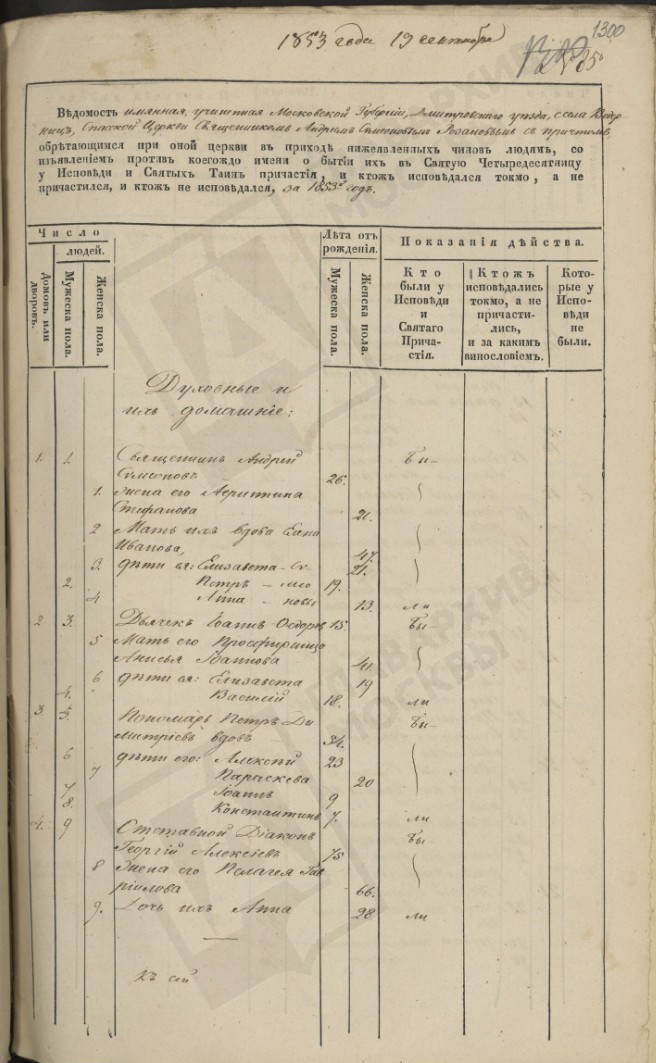 1853 года 19 сентября
1300
Вѣдомость имянная, учиненная Московской Губернiи, Дмитровскаго уѣзда, села
Спасской Церкви Священникомъ Андреемъ Симеоновымъ Розановымъ съ причтомъ
обрѣтающимся при оной церкви въ приходѣ нижеявленныхъ чиновъ людямъ, со
изъявленiемъ противъ коегождо имени о бытiи ихъ въ Святую Четыредесятницу
у Исповѣди и Святыхъ Таинъ причастiя, и ктожъ исповѣдался токмо, а не
причастился, и ктожъ не исповѣдался, за 1853й годъ.
Число
людей.
Домовъ или дворовъ.
Мужеска пола.
Женска пола.
Лѣта отъ рожденiя.
Мужеска пола.
Женска пола.
Показанiя дѣйства.
Кто были у Исповѣди и Святаго Причастiя.
Ктожъ исповѣдались токмо, а не причастились, и за какимъ винословiемъ.
Которые у Исповѣди не были.
Духовные и
ихъ домашнiе:
1. 1. Священникъ Андрей Бы-
Симеоновъ 26.
1. Жена его
Стефанова 21.
2 Мать ихъ вдова Елена
Иванова, 47.
3. дѣти ея: Елизавета - Си- 21.
2. Петръ - мео 19.
4 Анна - новы 13. ли
2 3. Дьячекъ Iоаннъ Ѳедоровъ 15 Бы
5 Мать его Просфирница
Анисья Iоаннова 41.
6 дѣти ея: Елизавета 19
4. Василiй 18. ли
3. 5. Пономарь Петръ Ди Бы-
митрiевъ вдовъ 34.
6 дѣти его: Алексѣй 23
7 Параскева 20
7 Iоаннъ 9
8. Константинъ 7. ли
4. 9 Дiаконъ Бы
Георгiй Алексѣевъ 75
8 Жена его Пелагея Гав
рiилова 66.
9. Дочь ихъ Анна 28 ли
Къ сей